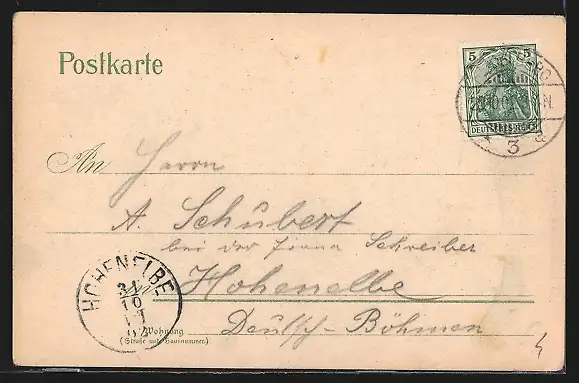 Postkarte
5 5
DEUTSCHES REICH
3 a
An Herrn
A. Schubert
bei der Firma Schreiber
in Hohenelbe
HOHENELBE
31
10
Deutsch-Böhmen
Wohnung
(Straße und Hausnummer)